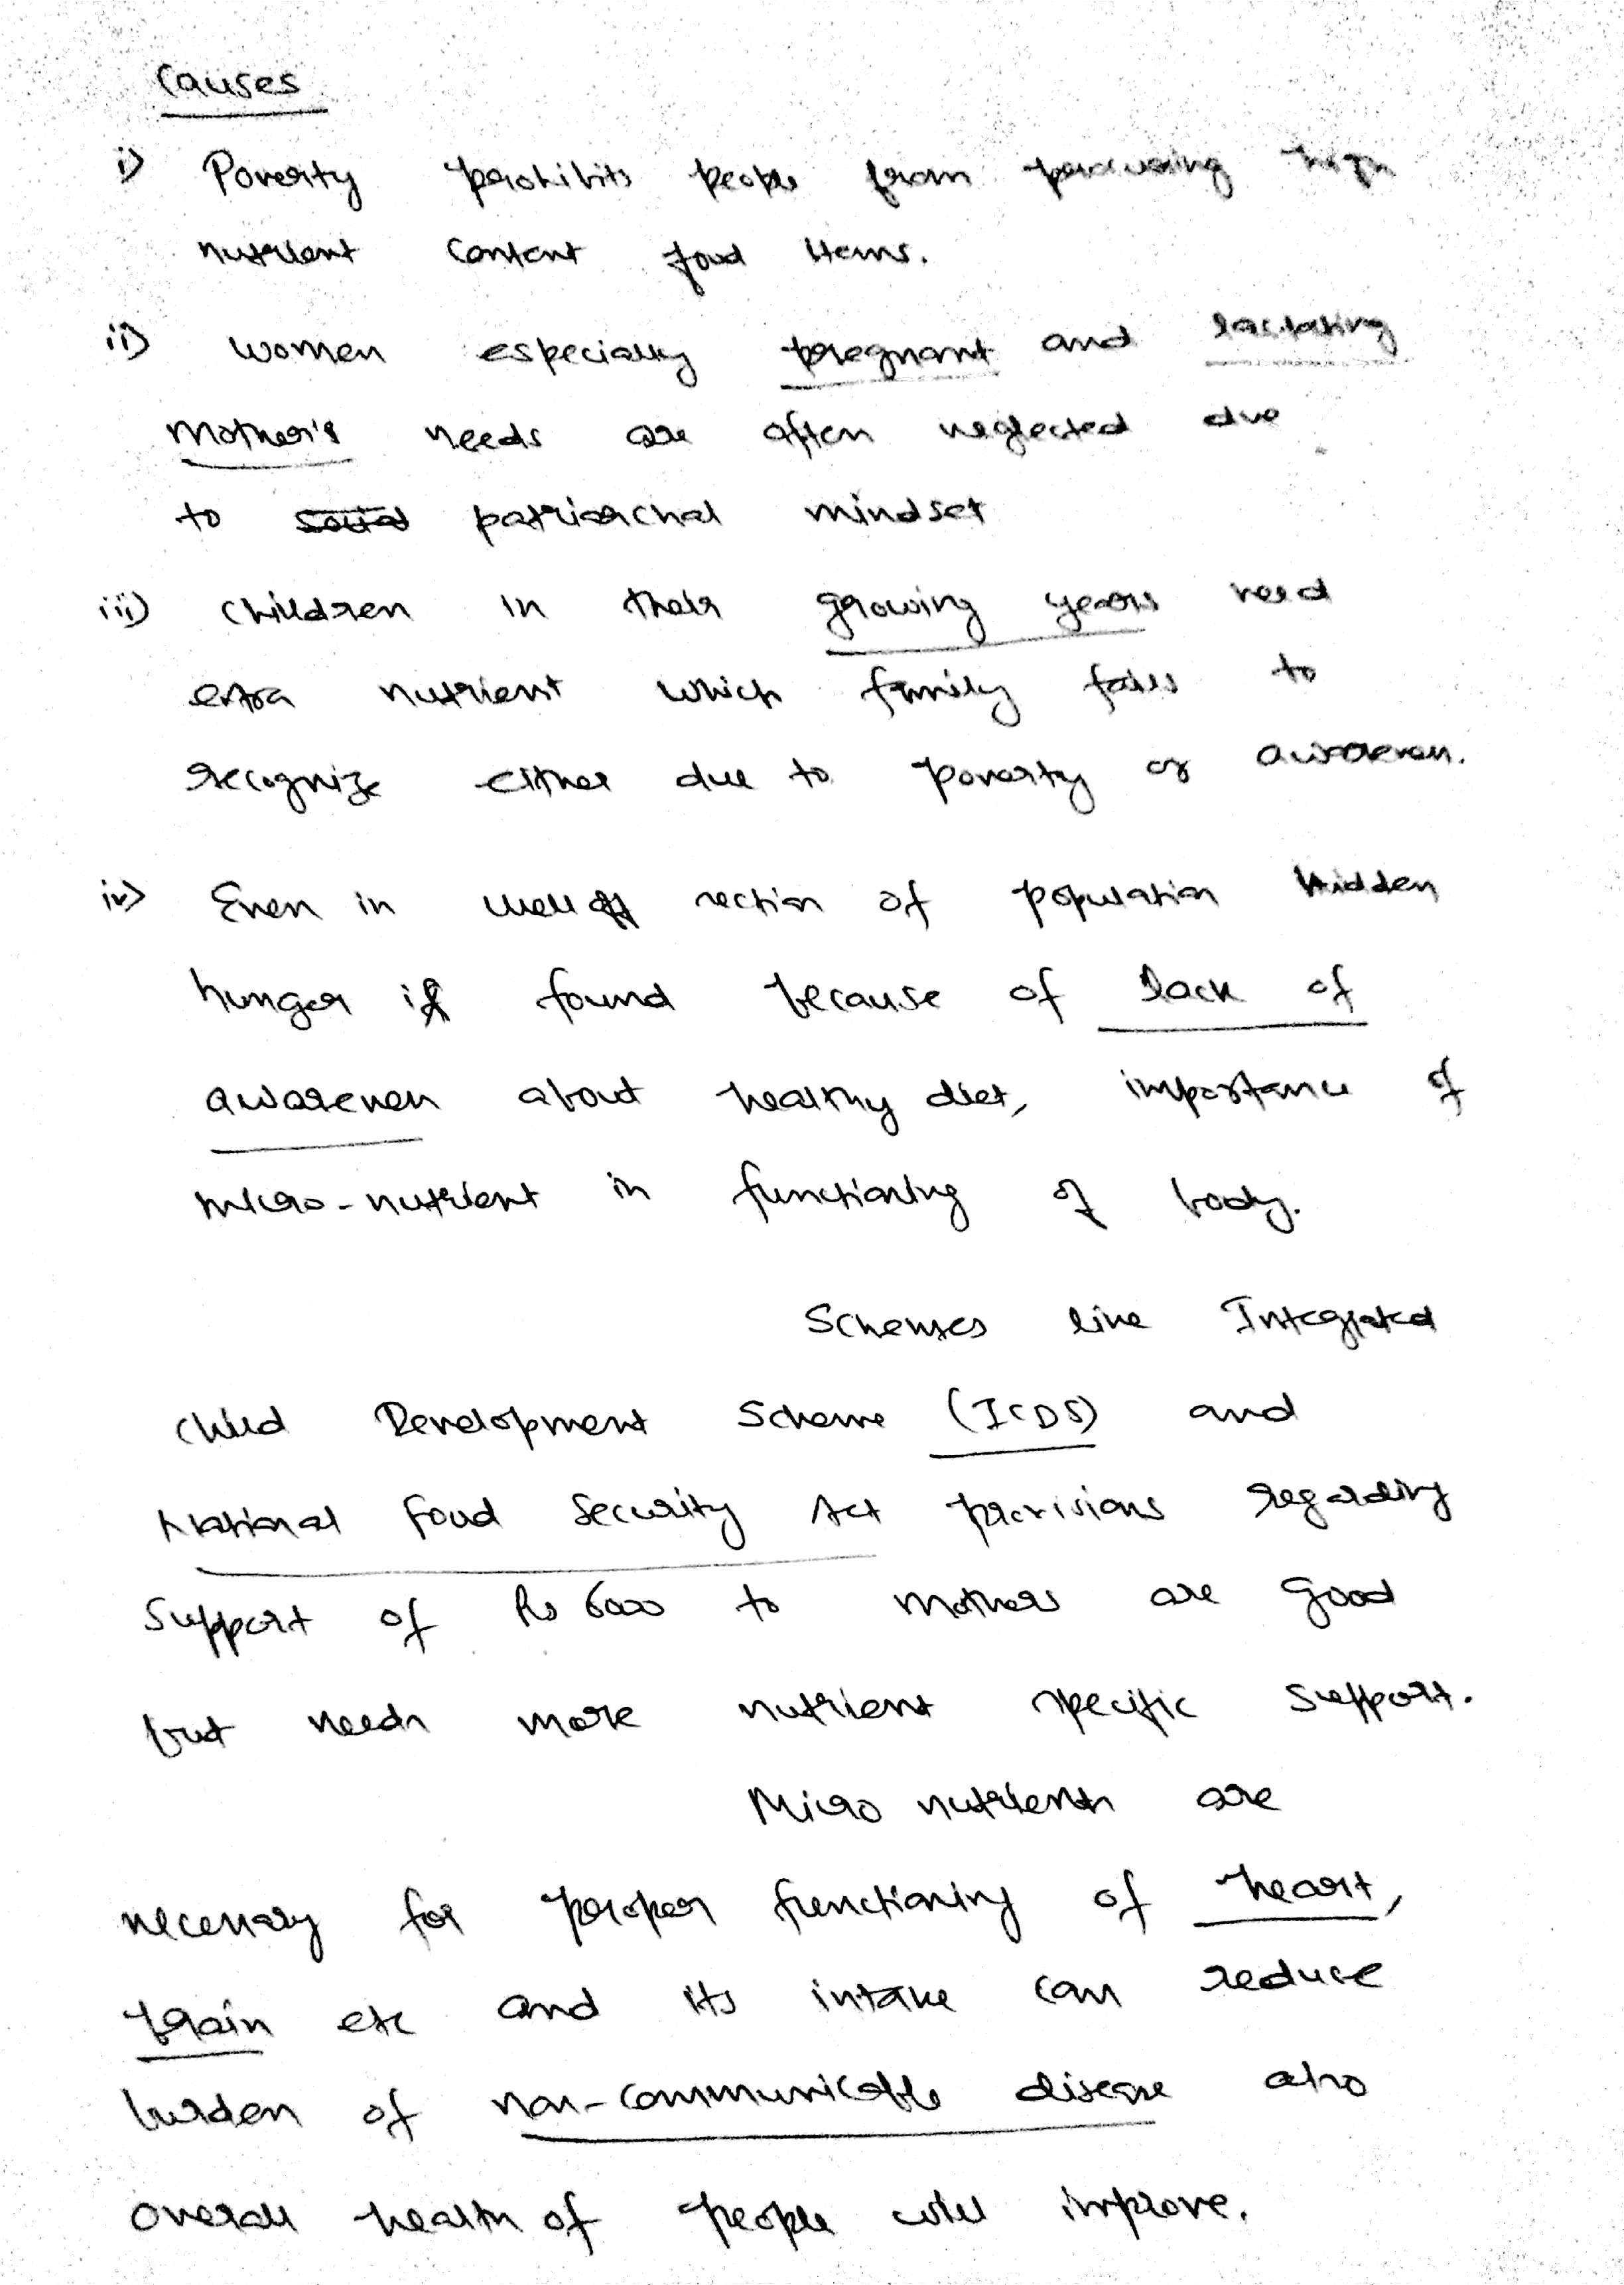 Causes
i) Poverty prohibits people from procuring high
nutrient content food items.
ii) women especially pregnant and lactating
Mother's needs are often neglected due
to social patriarchal mindset
iii) children in their growing years need
extra nutrient which family fails to
recognize either due to poverty or awareness.
iv) Even in well off section of population hidden
hunger is found because of lack of
awareness about healthy diet, importance of
micro-nutrient in functioning of body.
Schemes like Integrated
Child Development Scheme (ICDS) and
National Food Security Act provisions regarding
Support of Rs 6000 to mothers are good
but needs more nutrient specific support.
Micro nutrients are
necessary for proper functioning of heart,
brain etc and its intake can reduce
burden of non-communicable disease also
overall health of people will improve.